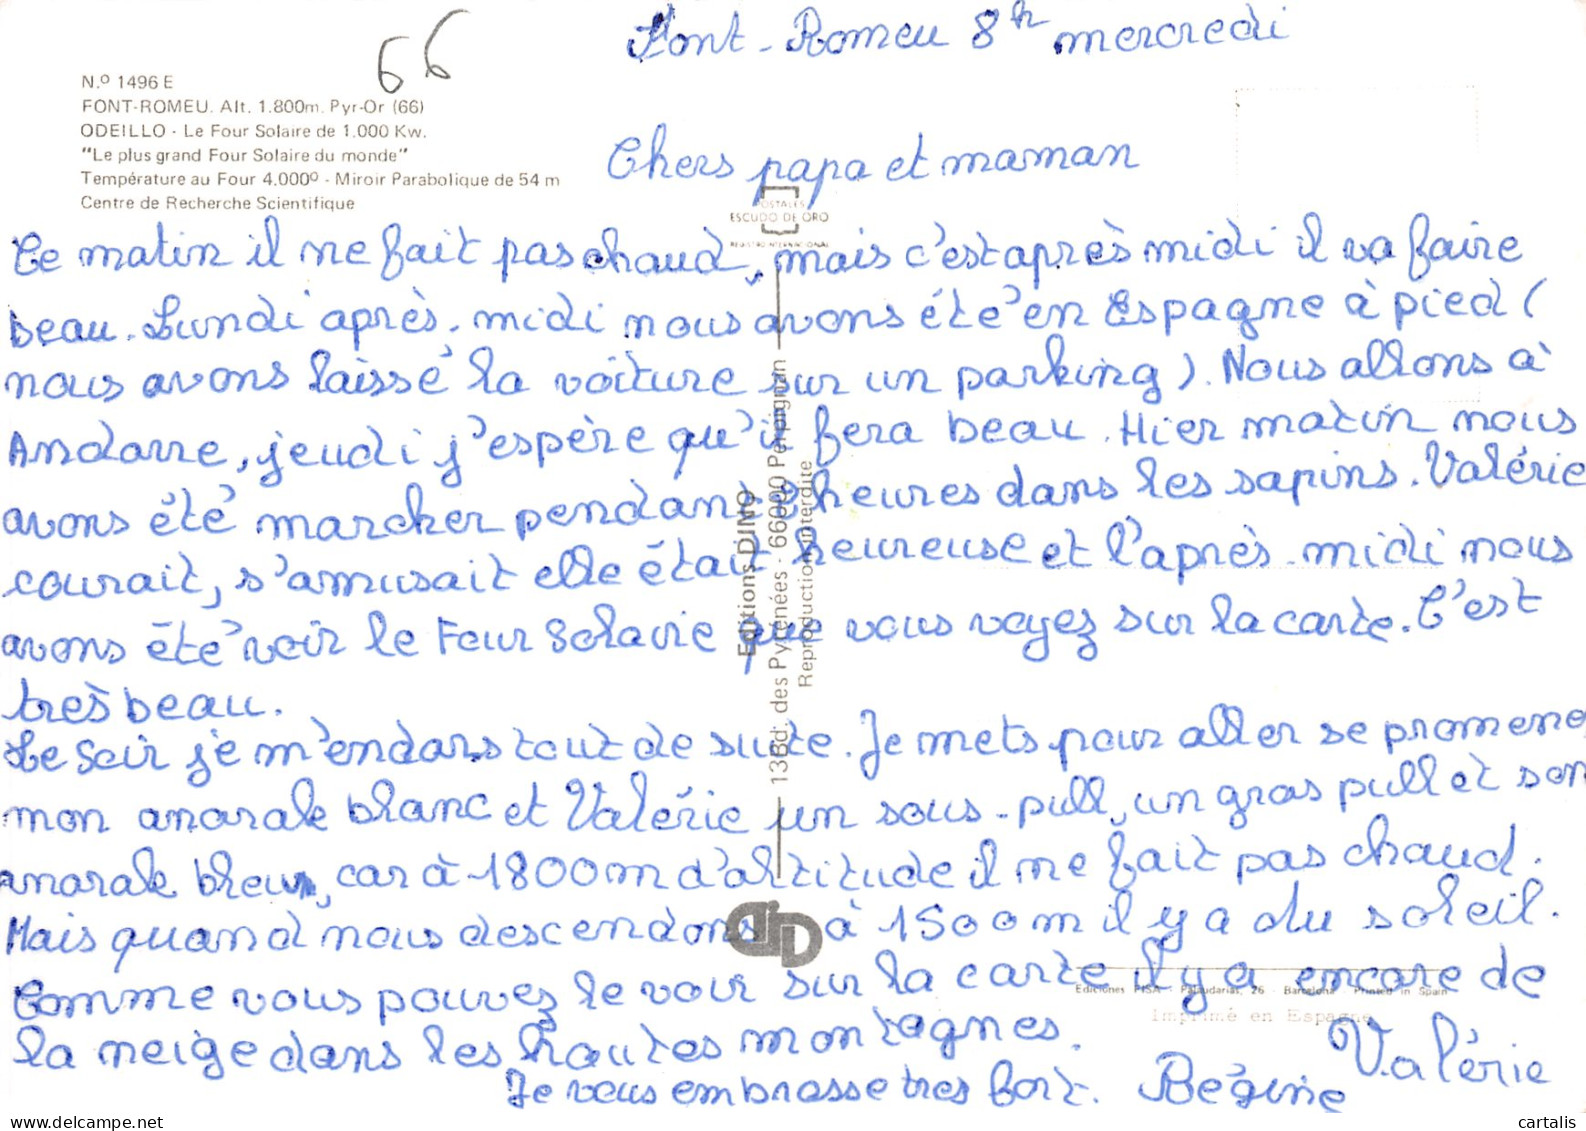 66
Font-Romeu 8h mercredi
N.º 1496 E
FONT-ROMEU. Alt. 1.800m. Pyr-Or (66)
ODEILLO - Le Four Solaire de 1.000 Kw.
"Le plus grand Four Solaire du monde"
Température au Four 4.000º - Miroir Parabolique de 54 m
Centre de Recherche Scientifique
Chers papa et maman
POSTALES
ESCUDO DE ORO
REGISTRO INTERNACIONAL
Ce matin il ne fait pas chaud, mais c'est après midi il va faire
beau. Lundi après-midi nous avons été en Espagne à pied (
nous avons laissé la voiture sur un parking). Nous allons à
Andorre, jeudi j'espère qu'il fera beau. Hier matin nous
avons été marcher pendant heures dans les sapins. Valérie
courait, s'amusait elle était heureuse et l'après-midi nous
avons été voir le Four Solavie que vous voyez sur la carte. C'est
très beau.
Le soir je m'endors tout de suite. Je mets pour aller se promener
mon anorak blanc et Valérie un sous-pull, un gros pull et son
anorak bleu, car à 1800m d'altitude il ne fait pas chaud.
Mais quand nous descendons à 1500m il y a du soleil.
Comme vous pouvez le voir sur la carte il y a encore de
la neige dans les hautes montagnes.
Je vous embrasse tres fort. Régine Valérie
Editions DINO
13Bd. des Pyrénées - 66000 Perpignan
Reproduction interdite
Ediciones PISA - Palaudarias, 26 - Barcelona - Printed in Spain
Imprimé en Espagne
cartalis